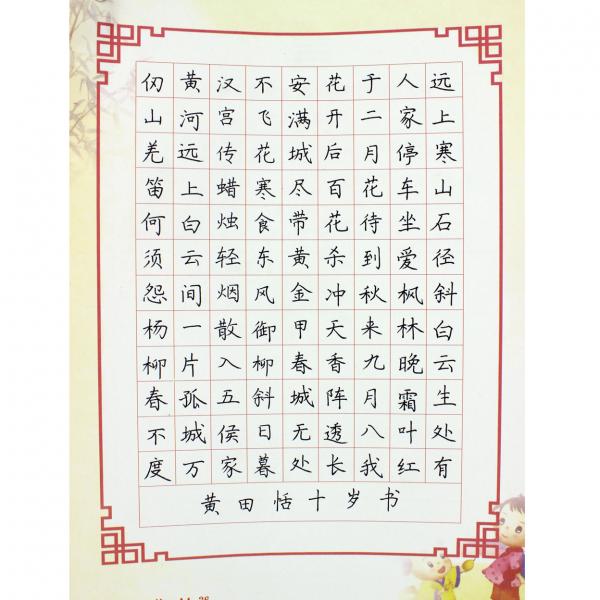 远上寒山石径斜白云生处有
人家停车坐爱枫林晚霜叶红
于二月花待到秋来九月八我
花开后百花杀冲天香阵透长
安满城尽带黄金甲春城无处
不飞花寒食东风御柳斜日暮
汉宫传蜡烛轻烟散入五侯家
黄河远上白云间一片孤城万
仞山羌笛何须怨杨柳春不度
黄田恬十岁书